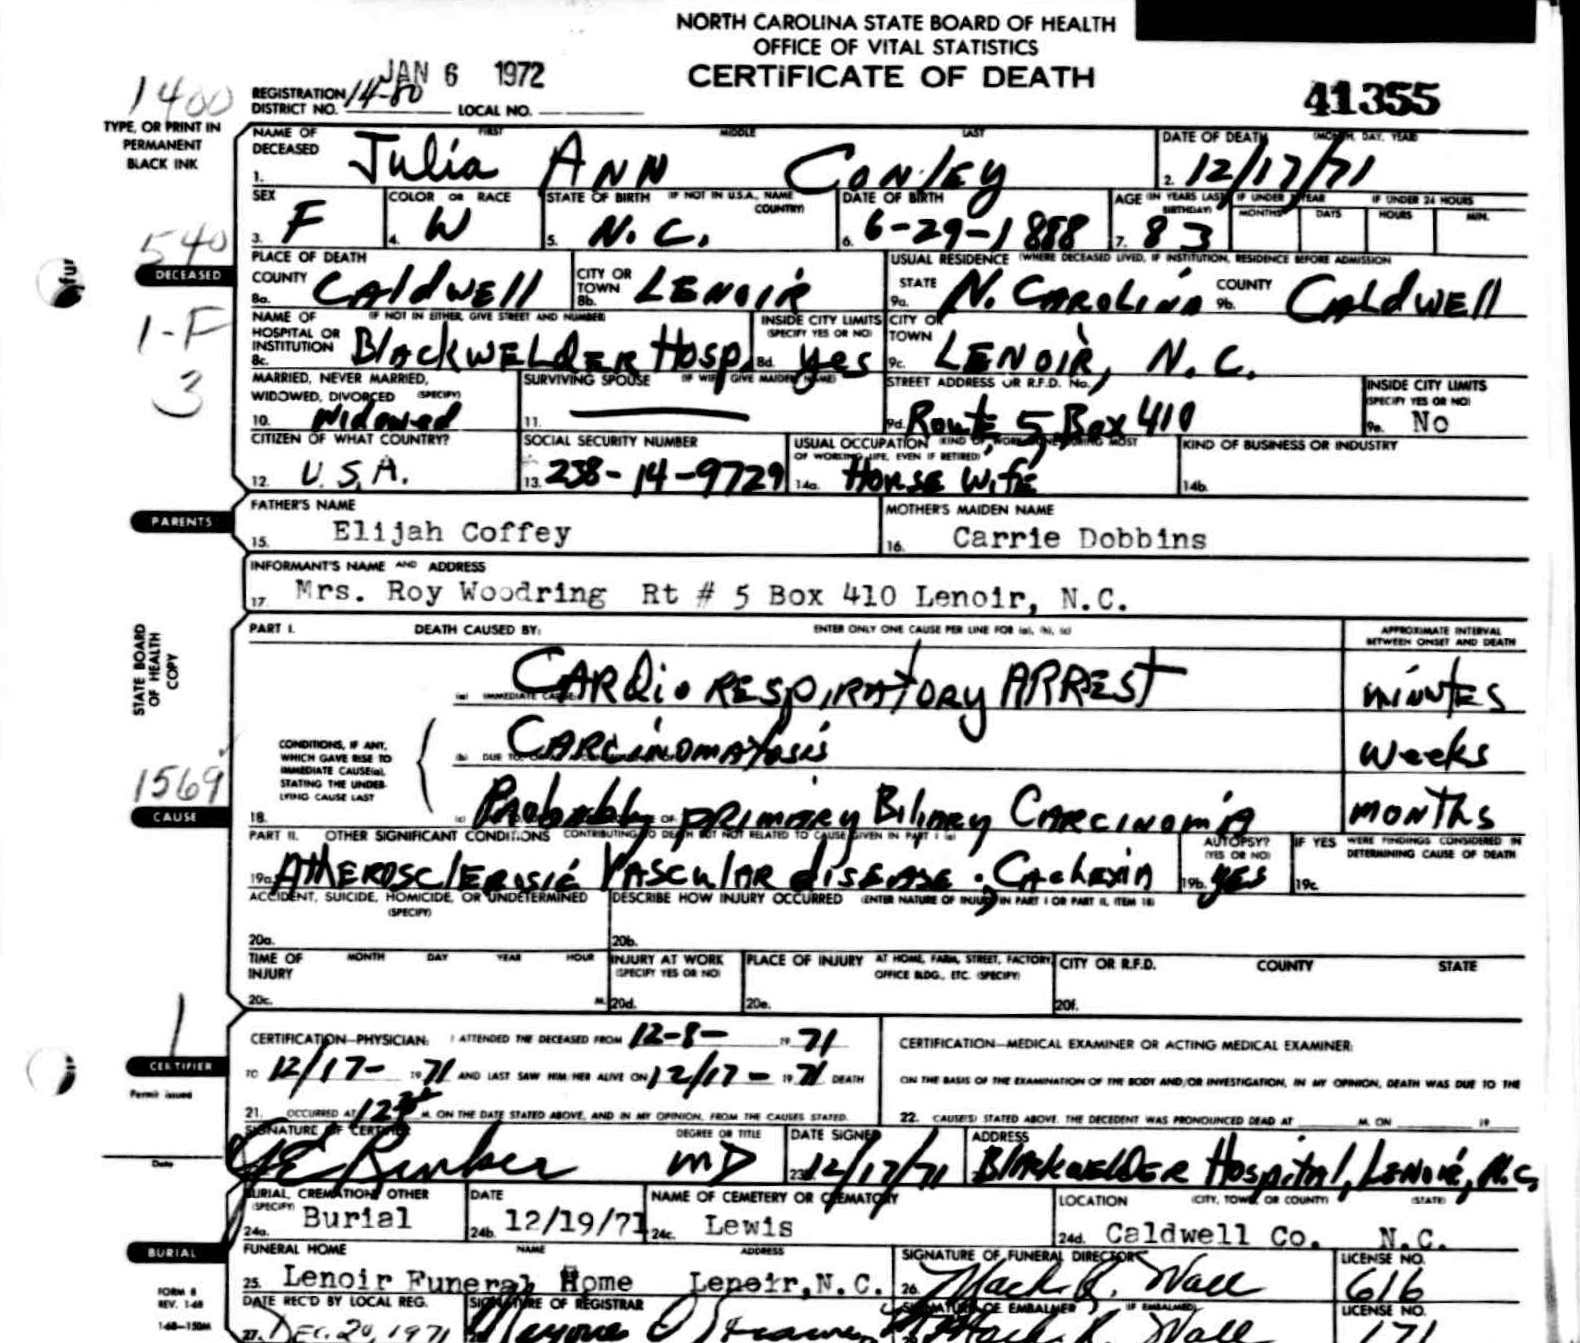 NORTH CAROLINA STATE BOARD OF HEALTH
OFFICE OF VITAL STATISTICS
CERTIFICATE OF DEATH
JAN 6 1972
1400
REGISTRATION DISTRICT NO. 14-80 LOCAL NO.
41355
TYPE, OR PRINT IN PERMANENT BLACK INK
NAME OF DECEASED FIRST MIDDLE LAST
1. Julia ANN CONLEY
DATE OF DEATH (MONTH, DAY, YEAR)
2. 12/17/71
SEX 3. F
COLOR OR RACE 4. W
STATE OF BIRTH (IF NOT IN U.S.A., NAME COUNTRY) 5. N.C.
DATE OF BIRTH 6. 6-29-1888
AGE (IN YEARS LAST BIRTHDAY) 7. 83
IF UNDER 1 YEAR MONTHS DAYS
IF UNDER 24 HOURS HOURS MIN.
540
DECEASED
PLACE OF DEATH
COUNTY 8a. CALDWELL
CITY OR TOWN 8b. LENOIR
USUAL RESIDENCE (WHERE DECEASED LIVED, IF INSTITUTION, RESIDENCE BEFORE ADMISSION
STATE 9a. N. CAROLINA
COUNTY 9b. CALDWELL
1-F
3
NAME OF HOSPITAL OR INSTITUTION (IF NOT IN EITHER, GIVE STREET AND NUMBER) 8c. BlackWELDER Hosp.
INSIDE CITY LIMITS (SPECIFY YES OR NO) 8d. yes
CITY OR TOWN 9c. LENOIR, N.C.
MARRIED, NEVER MARRIED, WIDOWED, DIVORCED (SPECIFY) 10. Widowed
SURVIVING SPOUSE (IF WIFE, GIVE MAIDEN NAME) 11.
STREET ADDRESS OR R.F.D. No. 9d. Route 5, Box 410
INSIDE CITY LIMITS (SPECIFY YES OR NO) 9e. No
CITIZEN OF WHAT COUNTRY? 12. U.S.A.
SOCIAL SECURITY NUMBER 13. 238-14-9729
USUAL OCCUPATION (KIND OF WORK DONE DURING MOST OF WORKING LIFE, EVEN IF RETIRED) 14a. HOUSE WifE
KIND OF BUSINESS OR INDUSTRY 14b.
PARENTS
FATHER'S NAME 15. Elijah Coffey
MOTHER'S MAIDEN NAME 16. Carrie Dobbins
INFORMANT'S NAME AND ADDRESS
17. Mrs. Roy Woodring Rt # 5 Box 410 Lenoir, N.C.
STATE BOARD OF HEALTH COPY
PART I. DEATH CAUSED BY: ENTER ONLY ONE CAUSE PER LINE FOR (a), (b), (c)
APPROXIMATE INTERVAL BETWEEN ONSET AND DEATH
(a) IMMEDIATE CAUSE CARdio RESPIRATORY ARREST minutes
CONDITIONS, IF ANY, WHICH GAVE RISE TO IMMEDIATE CAUSE(a), STATING THE UNDERLYING CAUSE LAST
(b) DUE TO CARCINOMATOSIS weeks
1569
CAUSE
18. (c) Probably primary Biliary CARCINOMA MONTHS
PART II. OTHER SIGNIFICANT CONDITIONS CONTRIBUTING TO DEATH BUT NOT RELATED TO CAUSE GIVEN IN PART I (a)
19a. AtHEROSCLEROSIC VASCULAR disEASE., CACHEXIA
AUTOPSY? (YES OR NO) 19b. YES
IF YES WERE FINDINGS CONSIDERED IN DETERMINING CAUSE OF DEATH 19c.
ACCIDENT, SUICIDE, HOMICIDE, OR UNDETERMINED (SPECIFY) 20a.
DESCRIBE HOW INJURY OCCURRED (ENTER NATURE OF INJURY IN PART I OR PART II, ITEM 18) 20b.
TIME OF INJURY MONTH DAY YEAR HOUR 20c. M.
INJURY AT WORK (SPECIFY YES OR NO) 20d.
PLACE OF INJURY AT HOME, FARM, STREET, FACTORY, OFFICE BLDG., ETC. (SPECIFY) 20e.
CITY OR R.F.D. COUNTY STATE 20f.
CERTIFIER
Permit issued
Date
CERTIFICATION—PHYSICIAN: I ATTENDED THE DECEASED FROM 12-8- 19 71
TO 12/17- 19 71 AND LAST SAW HIM/HER ALIVE ON 12/17- 19 71 DEATH
21. OCCURRED AT M. ON THE DATE STATED ABOVE, AND IN MY OPINION, FROM THE CAUSES STATED.
CERTIFICATION—MEDICAL EXAMINER OR ACTING MEDICAL EXAMINER:
ON THE BASIS OF THE EXAMINATION OF THE BODY AND/OR INVESTIGATION, IN MY OPINION, DEATH WAS DUE TO THE
22. CAUSE(S) STATED ABOVE. THE DECEDENT WAS PRONOUNCED DEAD AT M. ON 19
SIGNATURE OF CERTIFIER
DEGREE OR TITLE MD
DATE SIGNED 23. 12/17/71
ADDRESS BlackWELDER Hospital, LENOIR, N.C.
BURIAL, CREMATION, OTHER (SPECIFY) 24a. Burial
DATE 24b. 12/19/71
NAME OF CEMETERY OR CREMATORY 24c. Lewis
LOCATION (CITY, TOWN, OR COUNTY) (STATE) 24d. Caldwell Co. N.C.
BURIAL
FUNERAL HOME NAME ADDRESS
25. Lenoir Funeral Home Lenoir, N.C.
SIGNATURE OF FUNERAL DIRECTOR 26. Mack R. Wall
LICENSE NO. 616
FORM 8
REV. 1-68
1-68—150M
DATE REC'D BY LOCAL REG. 27. DEC. 20, 1971
SIGNATURE OF REGISTRAR
SIGNATURE OF EMBALMER (IF EMBALMED) Mack R. Wall
LICENSE NO. 171